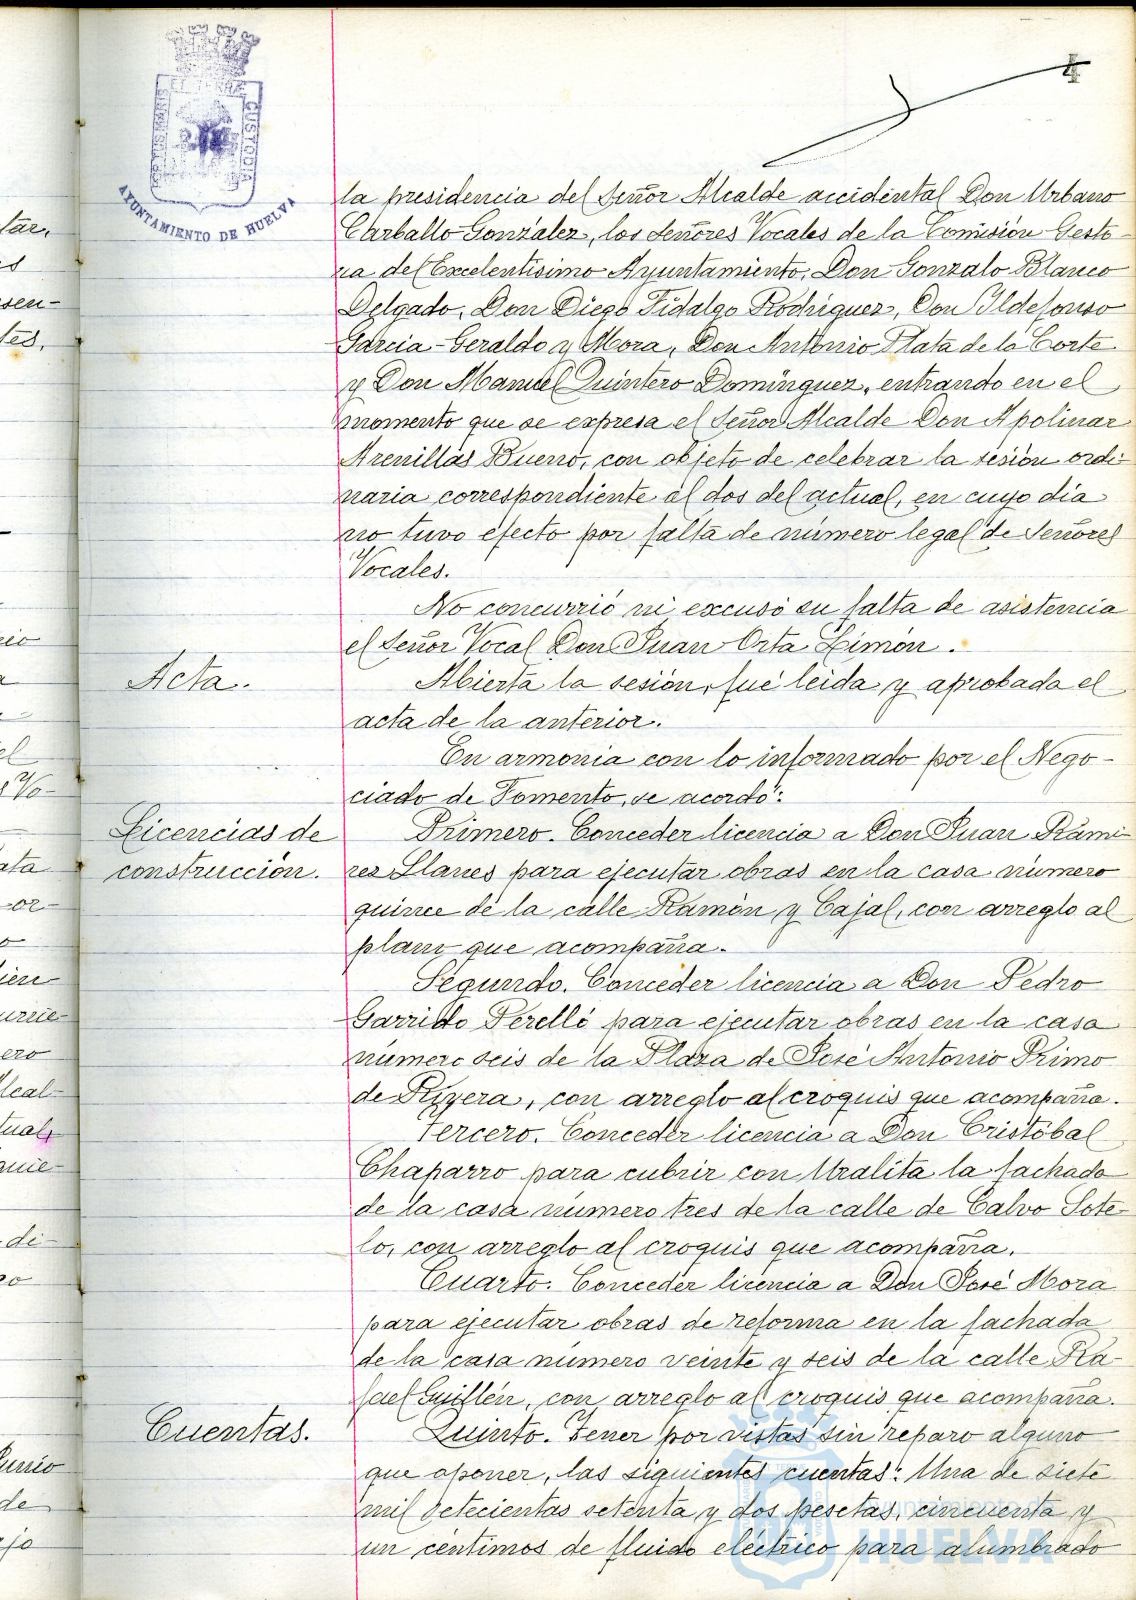 4
PORTUS MARIS ET TERRAE CUSTODIA
AYUNTAMIENTO DE HUELVA
la presidencia del Señor Alcalde accidental Don Urbano
Carballo González, los Señores Vocales de la Comisión Gesto-
ra del Excelentísimo Ayuntamiento, Don Gonzalo Blanco
Delgado, Don Diego Fidalgo Rodríguez, Don Ildefonso
García-Geraldo y Mora, Don Antonio Plata de la Corte
y Don Manuel Quintero Domínguez, entrando en el
momento que se expresa el Señor Alcalde Don Apolinar
Arenillas Bueno, con objeto de celebrar la sesión ordi-
naria correspondiente al dos del actual, en cuyo día
no tuvo efecto por falta de número legal de Señores
Vocales.
No concurrió ni excusó su falta de asistencia
el Señor Vocal Don Juan Orta Limón.
Acta.
Abierta la sesión, fué leida y aprobada el
acta de la anterior.
En armonia con lo informado por el Nego-
ciado de Fomento, se acordó:
Licencias de
construcción.
Primero. Conceder licencia a Don Juan Rami-
rez Llanes para ejecutar obras en la casa número
quince de la calle Ramón y Cajal, con arreglo al
plano que acompaña.
Segundo. Conceder licencia a Don Pedro
Garrido Perelló para ejecutar obras en la casa
número seis de la Plaza de José Antonio Primo
de Rivera, con arreglo al croquis que acompaña.
Tercero. Conceder licencia a Don Cristóbal
Chaparro para cubrir con Uralita la fachada
de la casa número tres de la calle de Calvo Sote-
lo, con arreglo al croquis que acompaña.
Cuarto. Conceder licencia a Don José Mora
para ejecutar obras de reforma en la fachada
de la casa número veinte y seis de la calle Ra-
fael Guillén, con arreglo al croquis que acompaña.
Cuentas.
Quinto. Tener por vistas sin reparo alguno
que oponer, las siguientes cuentas: Una de siete
mil setecientas setenta y dos pesetas, cincuenta y
un céntimos de fluido eléctrico para alumbrado
Ayuntamiento de
HUELVA